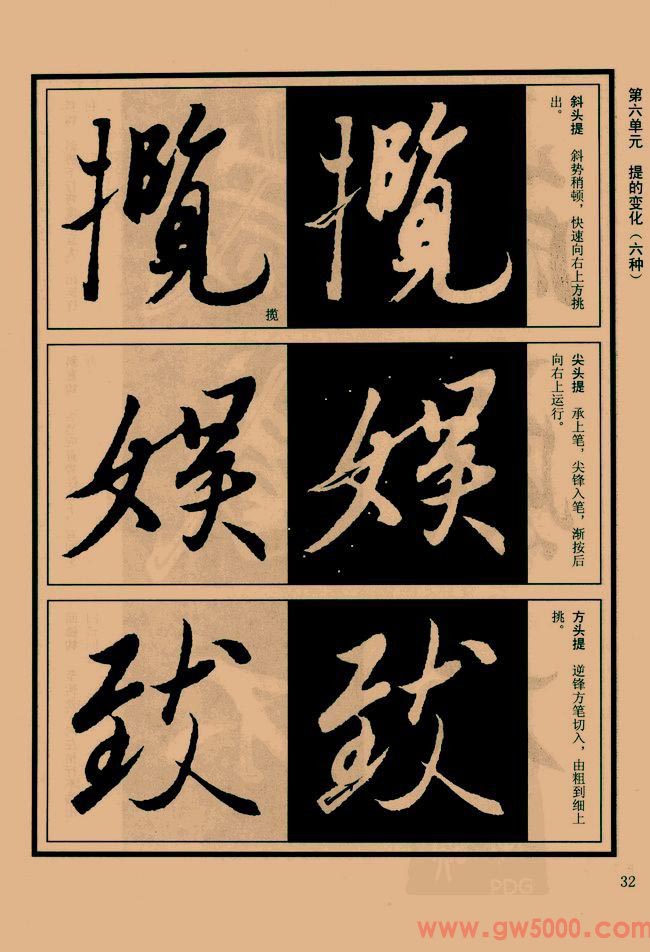 第六单元 提的变化（六种）
斜头提 斜势稍顿，快速向右上方挑
出。
攬 攬
揽
尖头提 承上笔，尖锋入笔，渐按后
向右上运行。
娱 娱
方头提 逆锋方笔切入，由粗到细上
挑。
致 致
32
PDG
www.gw5000.com